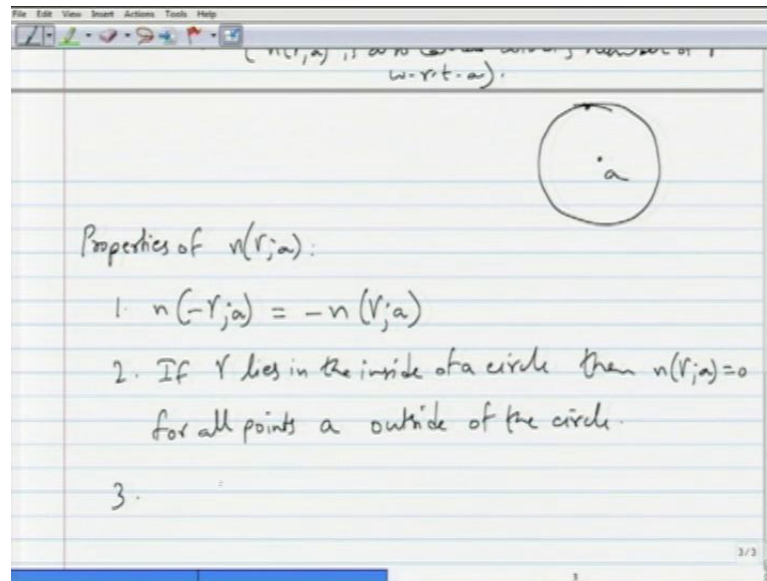 File Edit View Insert Actions Tools Help
w.r.t. a).
a
Properties of n(γ;a):
1. n(-γ;a) = -n(γ;a)
2. If γ lies in the inside of a circle then n(γ;a)=0
for all points a outside of the circle.
3.
3/3